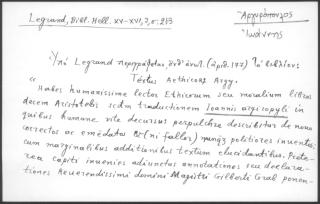 Legrand, Bibl. Hell. XV-XVI, 3, σ. 213
Ἀργυρόπουλος
Ἰωάννης
Ὑπὸ Legrand περιγράφεται, ὑπ' ἀριθ. (ἀριθ. 177) Τὸ βιβλίον:
Textus Aethicorum Argy.
"Habes humanissime lector Ethicorum seu moralium libros
decem Aristotelis scdm traductionem Joannis argiropyli in
quibus humane vite decursus perpulchre describitur de novo
correctos ac emēdatos Et (ni fallor) nunq3 politiores inventos:
cum marginalibus additionibus textum elucidantibus. Prete-
rea capiti invenies adiunctas annotationes seu declara-
tiones Reverendissimi domini Magistri Gilberti Gral ponen-